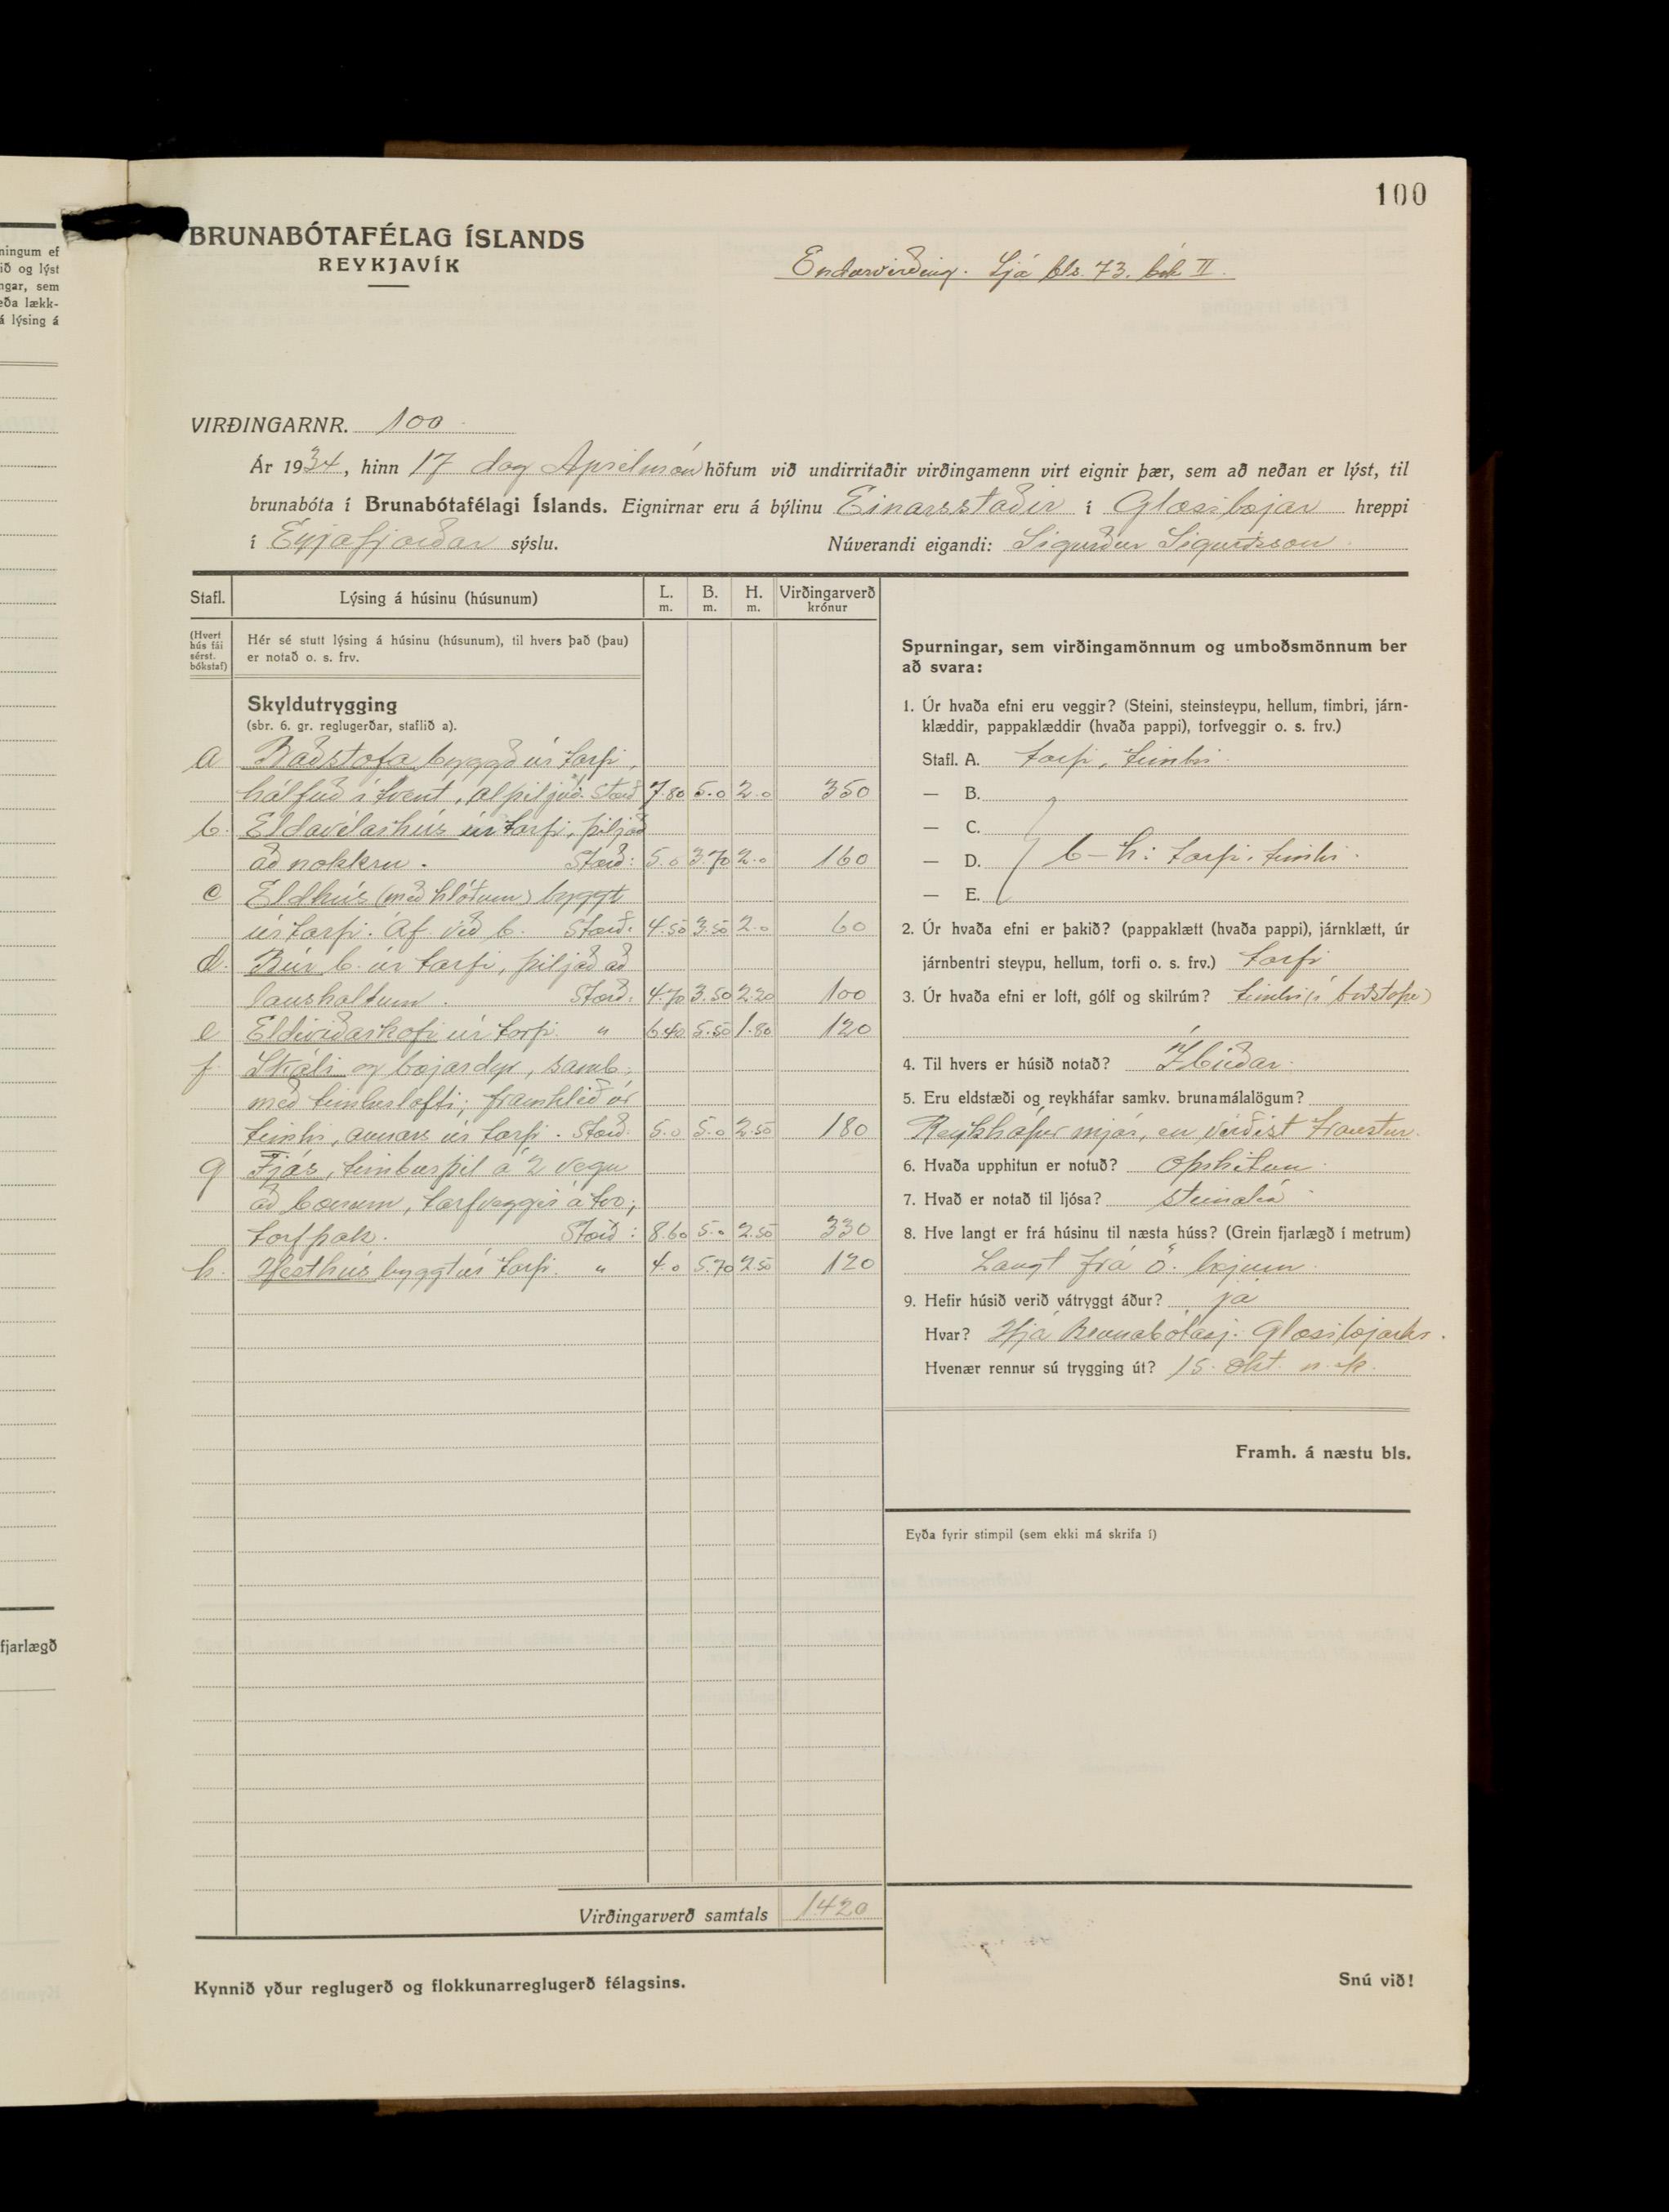 ningum ef
ið og lýst
ngar, sem
eða lækk-
á lýsing á
fjarlægð
100
BRUNABÓTAFÉLAG ÍSLANDS
REYKJAVÍK
Endurvirðing. Sjá bls. 73. bók II.
VIRÐINGARNR. 100
Ár 1934, hinn 17 dag Aprílmán höfum við undirritaðir virðingamenn virt eignir þær, sem að neðan er lýst, til
brunabóta í Brunabótafélagi Íslands. Eignirnar eru á býlinu Einarsstaðir í Glæsibæjar hreppi
í Eyjafjarðar sýslu. Núverandi eigandi: Sigurður Sigurðsson
Stafl. Lýsing á húsinu (húsunum) L. m. B. m. H. m. Virðingarverð krónur
(Hvert hús fái sérst. bókstaf)
Hér sé stutt lýsing á húsinu (húsunum), til hvers það (þau)
er notað o. s. frv.
Skyldutrygging
(sbr. 6. gr. reglugerðar, staflið a).
a Baðstofa byggð úr torfi,
hálfuð í tvent, alþiljuð. Stærð 7.80 5.0 2.0 350
b. Eldavélarhús úr torfi, þiljað
að nokkru. Stærð: 5.0 3.70 2.0 160
c Eldhús (með hlóðum) byggt
úr torfi. Áf. við b. Stærð: 4.50 3.50 2.0 60
d. Búr b. úr torfi, þiljað að
Stærð: 4.70 3.50 2.20 100
e Eldiviðarkofi úr torfi. " 6.40 5.50 1.80 120
f. Skáli og bæjardyr, samb.
með timburlofti; framhlið úr
timbri, annars úr torfi. Stærð: 5.0 5.0 2.50 180
g Fjós, timburþil á 2 vegu
að torfveggir á tvo;
torfþak. Stærð: 8.60 5.0 2.50 330
h. Hesthús byggt úr torfi. " 4.0 5.70 2.50 120
Virðingarverð samtals 1420
Kynnið yður reglugerð og flokkunarreglugerð félagsins.
Spurningar, sem virðingamönnum og umboðsmönnum ber
að svara:
1. Úr hvaða efni eru veggir? (Steini, steinsteypu, hellum, timbri, járn-
klæddir, pappaklæddir (hvaða pappi), torfveggir o. s. frv.)
Stafl. A. torfi, timbri.
— B.
— C.
— D. b-h: torfi, timbri.
— E.
2. Úr hvaða efni er þakið? (pappaklætt (hvaða pappi), járnklætt, úr
járnbentri steypu, hellum, torfi o. s. frv.) torfi
3. Úr hvaða efni er loft, gólf og skilrúm? timbri (í baðstofu)
4. Til hvers er húsið notað? Íbúðar.
5. Eru eldstæði og reykháfar samkv. brunamálalögum?
Reykháfur mjór, en virðist traustur.
6. Hvaða upphitun er notuð? Ofnhitun
7. Hvað er notað til ljósa? steinolía
8. Hve langt er frá húsinu til næsta húss? (Grein fjarlægð í metrum)
Langt frá ö. bæjum.
9. Hefir húsið verið vátryggt áður? já
Hvar? Hjá Brunabótasj. Glæsibæjarhr.
Hvenær rennur sú trygging út? 15. okt. n. k.
Framh. á næstu bls.
Eyða fyrir stimpil (sem ekki má skrifa í)
Snú við!